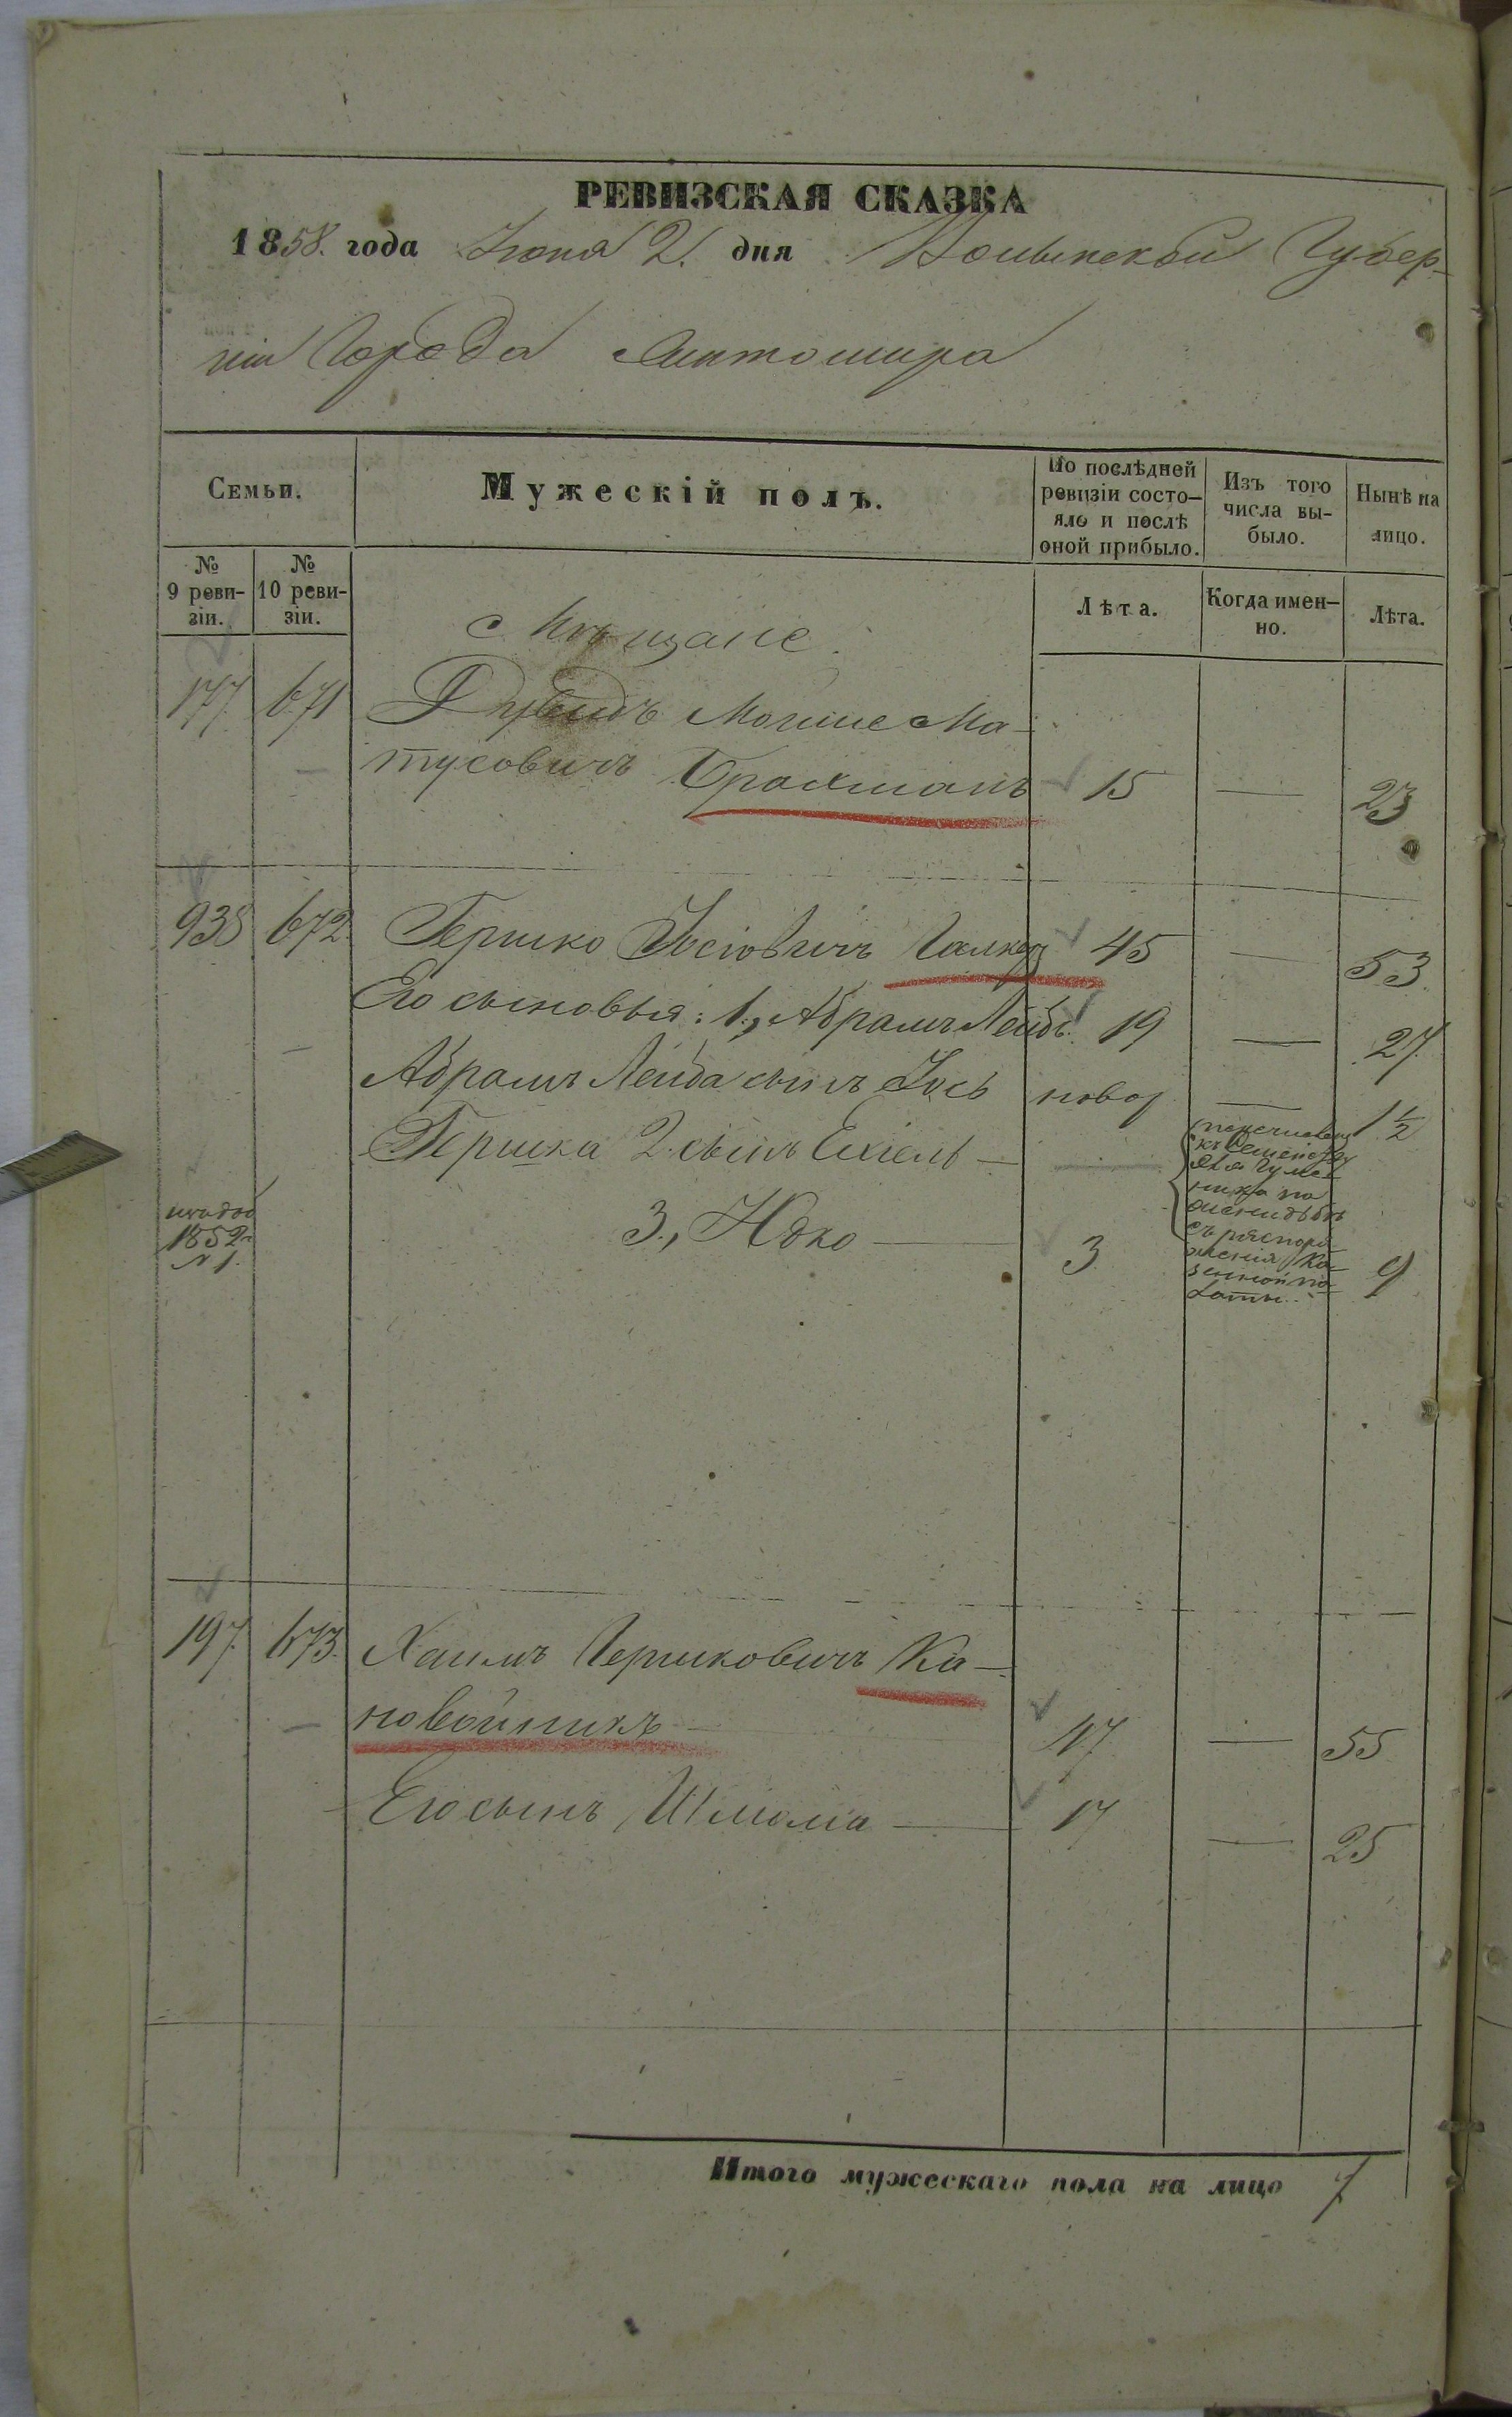 РЕВИЗСКАЯ СКАЗКА
1858. года Іюня 2. дня Волынской Губер-
ніи Города Житомира
Семьи.
Мужескій полъ.
По послѣдней ревизіи состо-яло и послѣ оной прибыло.
Изъ того числа вы-было.
Нынѣ на лицо.
№ 9 реви-зіи.
№ 10 реви-зіи.
Лѣта.
Когда имен-но.
Лѣта.
Мѣщане.
177 671 Мошие Ма-
тусовичъ Брахманъ 15 — 23
938 672 Гершко Іосіовичъ 45 — 53.
Его сыновья: 1., Абрамъ Лейбъ. 19 — 27.
Абрамъ Лейба сынъ Іось новор — 1 1/2
Гершка 2. сынъ Ехіель —
3., Юдко — 3 9
1852
№ 1.
перечисленъ
къ
съ распоря-
женія Ка-
зенной па-
латы.
197 673. Хаимъ Гершковичъ Ка-
новойникъ 47 — 55
Его сынъ Шлома — 17 — 25
Итого мужескаго пола на лицо 7